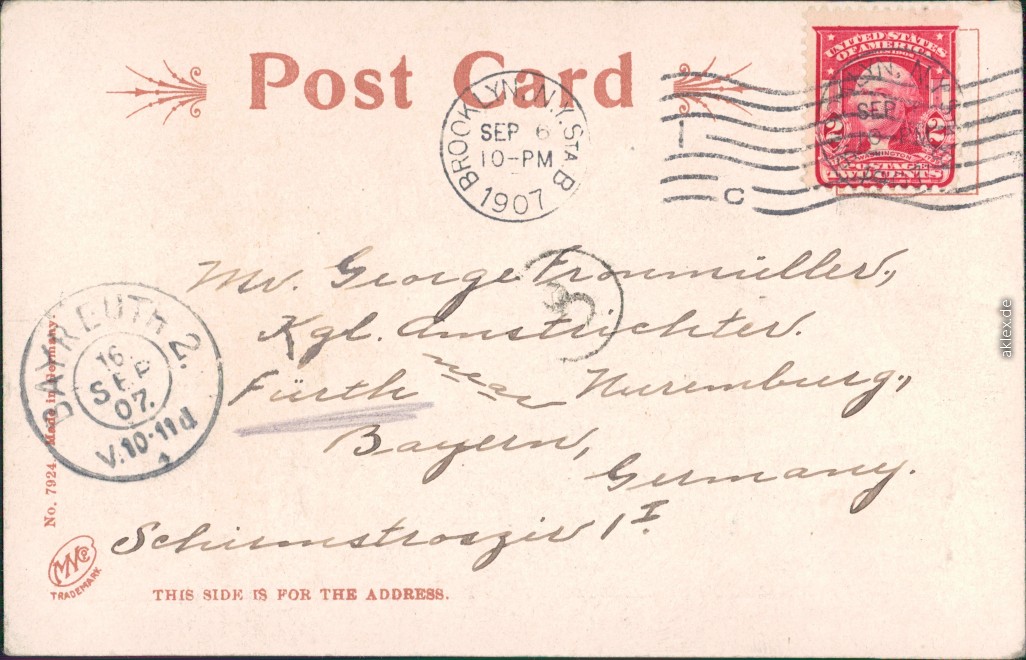 Post Card
BROOKLYN, N.Y. STA. B
SEP 6
10-PM
1907
C
UNITED STATES
OF AMERICA
2 2
WASHINGTON
POSTAGE
TWO CENTS
SEP
Mr. George Fronmüller,
Kgl. Amstrichter.
Fürth near Nuremburg,
Bayern,
Germany.
BAYREUTH 2.
16
SEP
07.
V.10-11
1
No. 7924. Made in Germany.
TRADEMARK
THIS SIDE IS FOR THE ADDRESS.
aklex.de